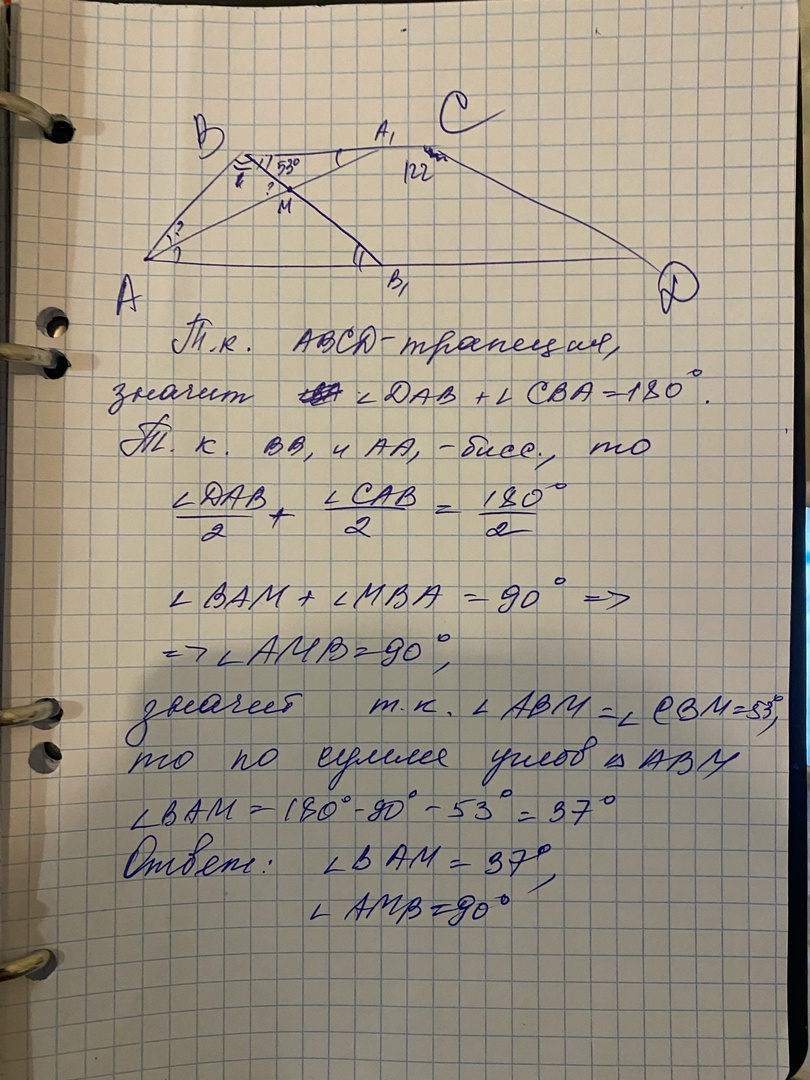 B
A₁
C
53°
122
?
M
?
A
B₁
D
Т.к. ABCD-трапеция,
значит ∠DAB + ∠CBA = 180°.
Т. к. BB₁ и AA₁ -бисс., то
∠DAB/2 + ∠CAB/2 = 180°/2
∠BAM + ∠MBA = 90° =>
=> ∠AMB = 90°,
значит т.к. ∠ABM = ∠CBM = 53°,
то по сумме углов △ABM
∠BAM = 180° - 90° - 53° = 37°
Ответ: ∠BAM = 37°,
∠AMB = 90°